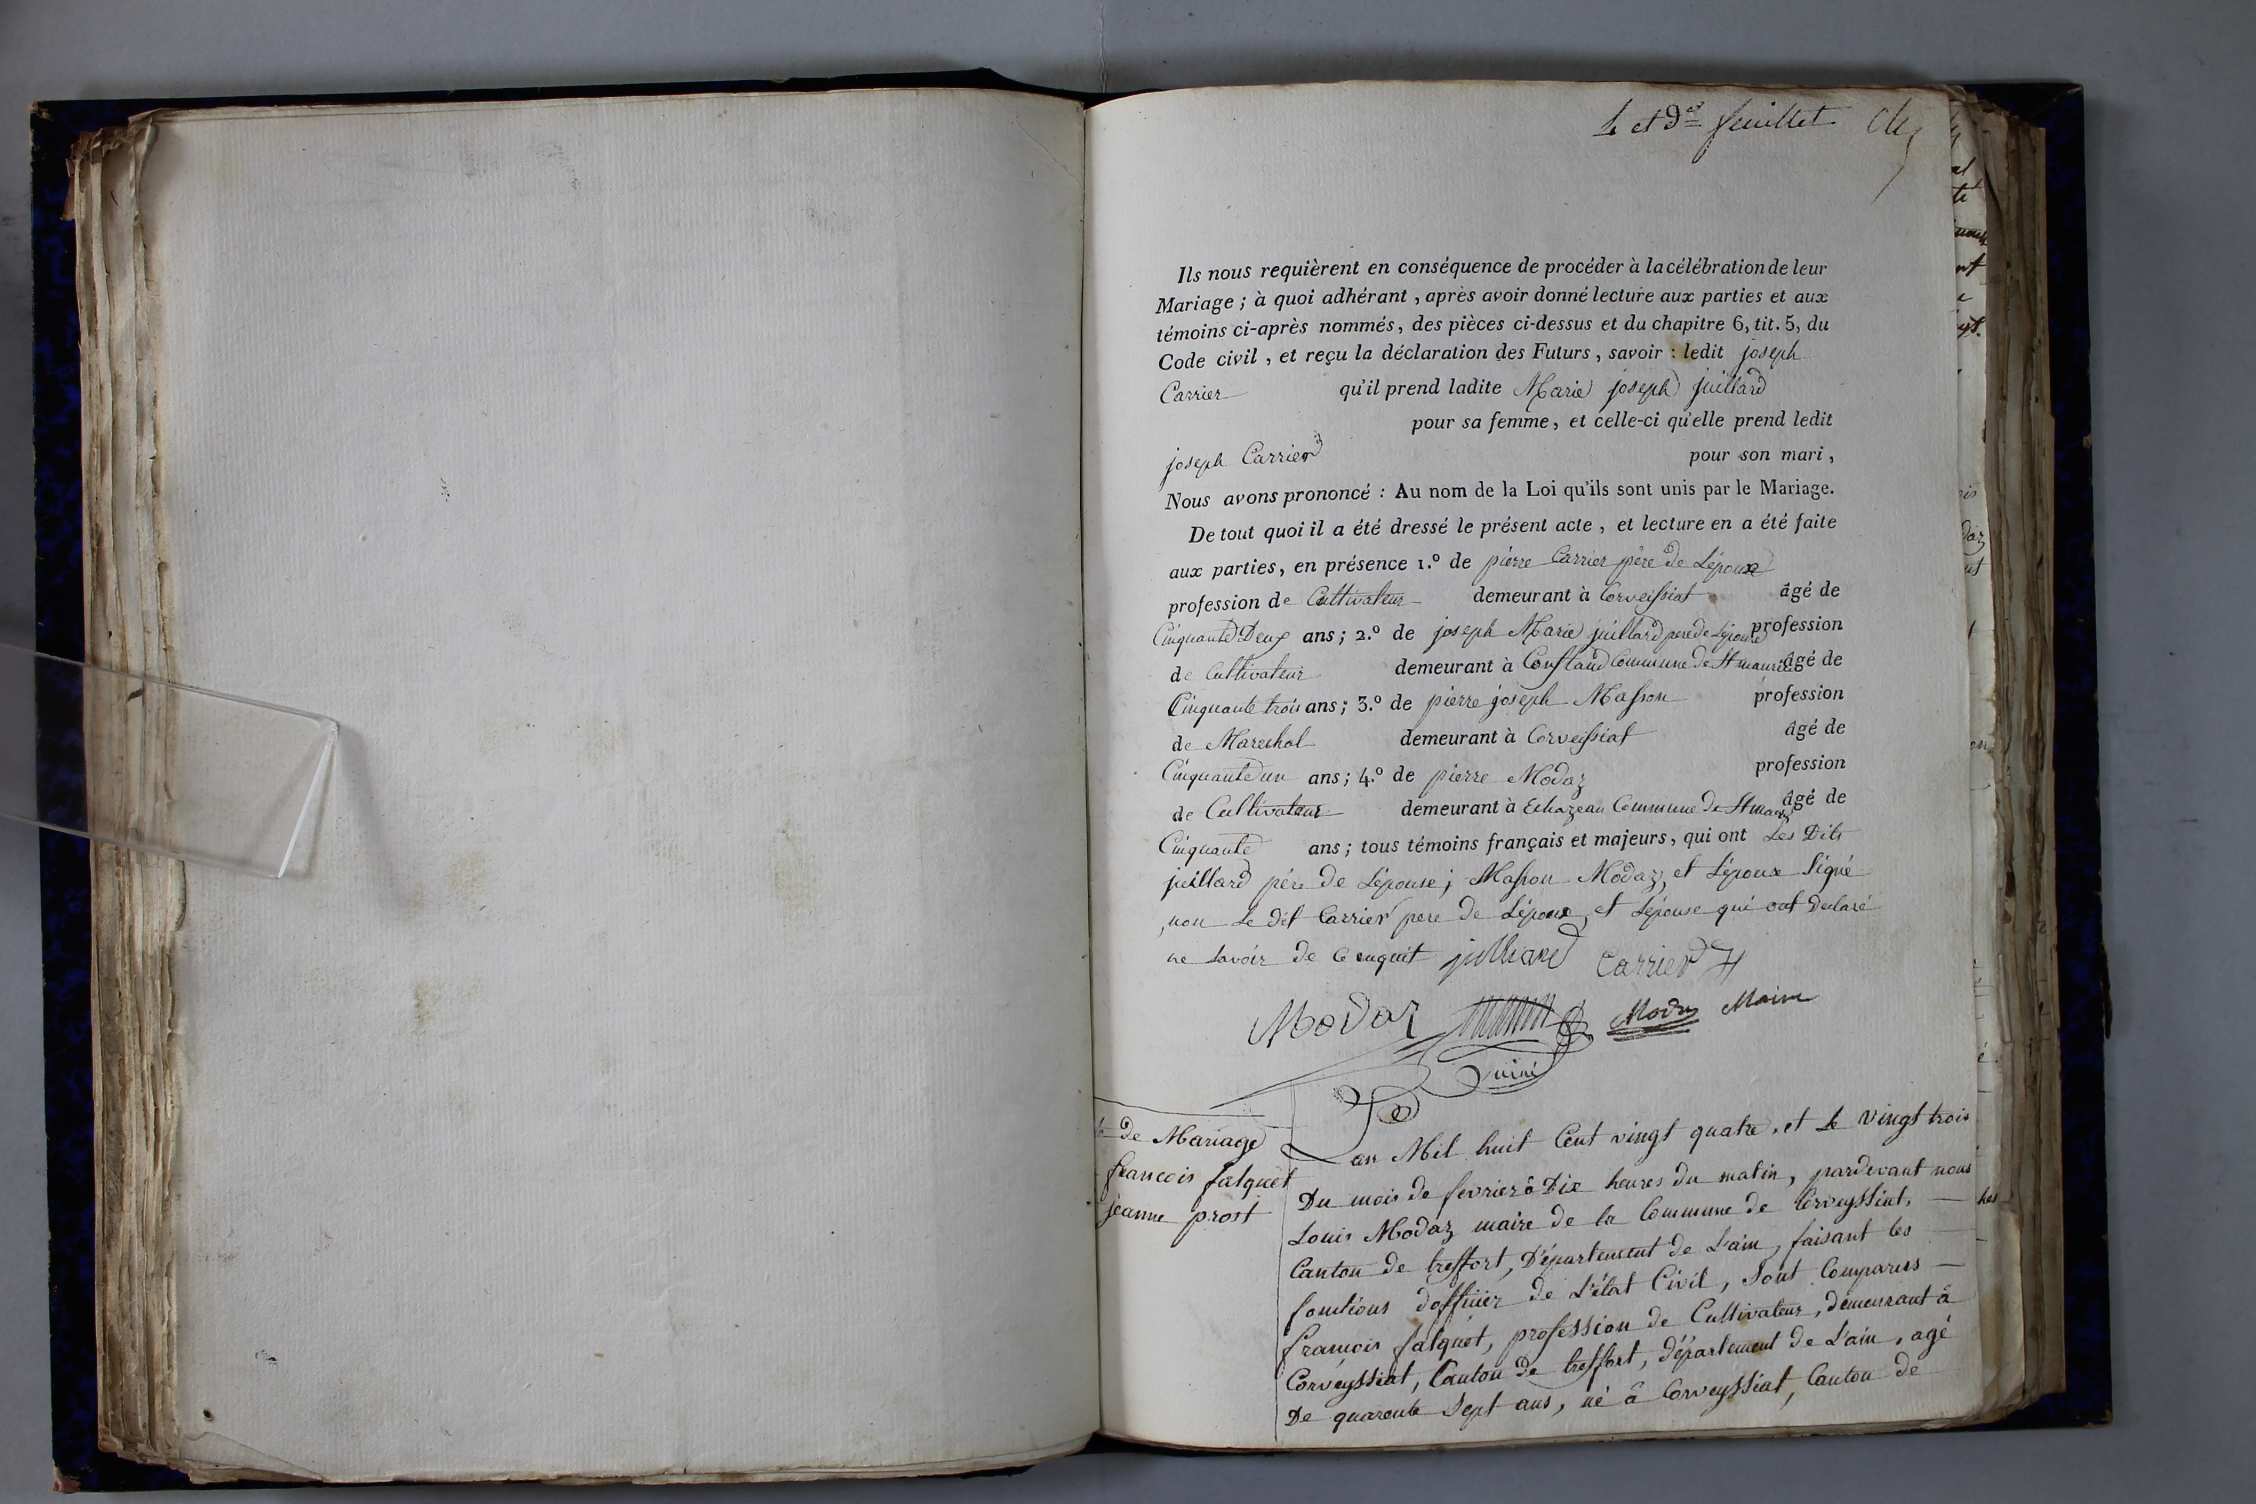 et der feuillet
Ils nous requièrent en conséquence de procéder à la célébration de leur
Mariage ; à quoi adhérant , après avoir donné lecture aux parties et aux
témoins ci-après nommés, des pièces ci-dessus et du chapitre 6, tit. 5, du
Code civil , et reçu la déclaration des Futurs , savoir : ledit joseph
Carrier qu'il prend ladite Marie joseph juillard
pour sa femme, et celle-ci qu'elle prend ledit
joseph Carrier pour son mari ,
Nous avons prononcé : Au nom de la Loi qu'ils sont unis par le Mariage.
De tout quoi il a été dressé le présent acte , et lecture en a été faite
aux parties, en présence 1.º de pierre Carrier père de Lépoux
profession de Cultivateur demeurant à Corveissiat âgé de
Cinquante Deux ans ; 2.º de joseph Marie juillard pere de Lépouse profession
de Cultivateur demeurant à Confland Commune de St maurice âgé de
Cinquante trois ans ; 3.º de pierre joseph Masson profession
de Marechal demeurant à Corveissiat âgé de
Cinquante un ans ; 4.º de pierre Modaz profession
de Cultivateur demeurant à Echazeau Commune de St maur âgé de
Cinquante ans ; tous témoins français et majeurs, qui ont Les Dits
juillard père de Lépouse ; Masson Modaz, et Lépoux Signé
non Le dit Carrier pere de Lépoux, et Lépouse qui ont Declaré
ne Savoir de Ce enquit julliard Carrier
Modaz Modaz Maire
de Mariage
francois falquet
jeanne prost
Lan Mil huit Cent vingt quatre, et Le vingt trois
Du mois de fevrier à Dix heures du matin, pardevant nous
Louis Modaz maire de la Commune de Corveyssiat,
Canton de treffort, Département de L'ain, faisant les
fonctions dofficier de L'état Civil, Sont Comparus
françois falquet, profession de Cultivateur, demeurant à
Corveyssiat, Canton de treffort, département de L'ain, agé
De quarante Sept ans, né à Corveyssiat, Canton de